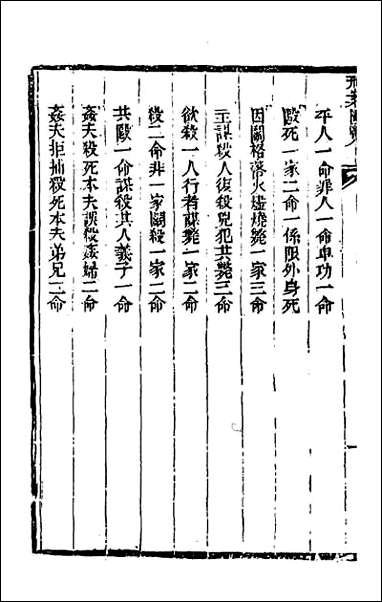 刑案匯覽
平人一命罪人一命卑幼一命
毆死一家二命一係限外身死
因鬭格落火爐燒斃一家三命
主謀殺人復殺兇犯共斃三命
欲殺一人行者謀斃一家二命
殺二命非一家鬭殺一家二命
共毆一命謀殺其人義子一命
姦夫殺死本夫誤殺姦婦二命
姦夫拒捕殺死本夫弟兄二命